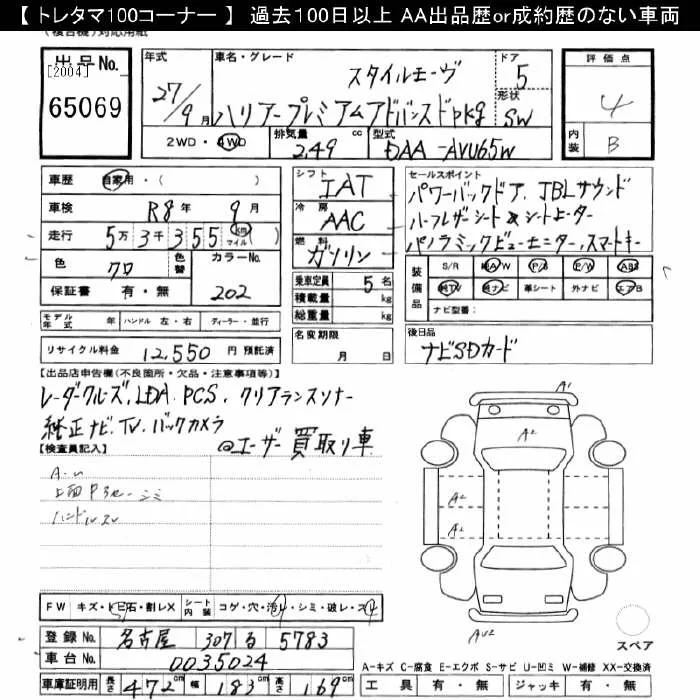 【 トレタマ100コーナー 】 過去100日以上 AA出品歴or成約歴のない車両
(複合機)対応用紙
出品No. [2004] 65069
年式 27/9月
車名・グレード スタイルモーヴ
ハリアープレミアムアドバンスドpkg
ドア 5
形状 SW
2WD・4WD 排気量 2.49 cc 型式 DAA-AVU65W
評価点 4
内装 B
車歴 自家用・( )
車検 R8年 9月
走行 5万3千355 km マイル ( )
色 クロ 色替 カラーNo. 202
保証書 有・無
モデル年式 年 ハンドル 左・右 ディーラー・並行
リサイクル料金 12,550 円 預託済
シフト IAT
冷房 AAC
燃料 ガソリン
乗車定員 5 名
積載量 kg
総重量 kg
名変期限 月 日
セールスポイント
パワーバックドア、JBLサウンド
ハーフレザーシート & シートヒーター
パノラミックビューモニター、スマートキー
装備品 S/R 純A/W P/S P/W ABS
純TV 純ナビ 革シート 外ナビ エアB
ナビ型番:
後日品
ナビSDカード
【出品店申告欄(不良箇所・欠品・注意事項等)】
レーダークルーズ、LDA、PCS、クリアランスソナー
純正ナビ、TV、バックカメラ
@ユーザー買取り車
【検査員記入】
ハンドルスレ
A1
A2
A1
A1
AU2
FW キズ・飛石・割レX シート内装 コゲ・穴・汚・シミ・破レ・スレ
登録No. 名古屋 307 る 5783
車台No. 0035024
車庫証明用 長さ 472cm 幅 183cm 高さ 169cm
スペア
A-キズ C-腐食 E-エクボ S-サビ U-凹ミ W-補修 XX-交換済
工具 有・無 ジャッキ 有・無